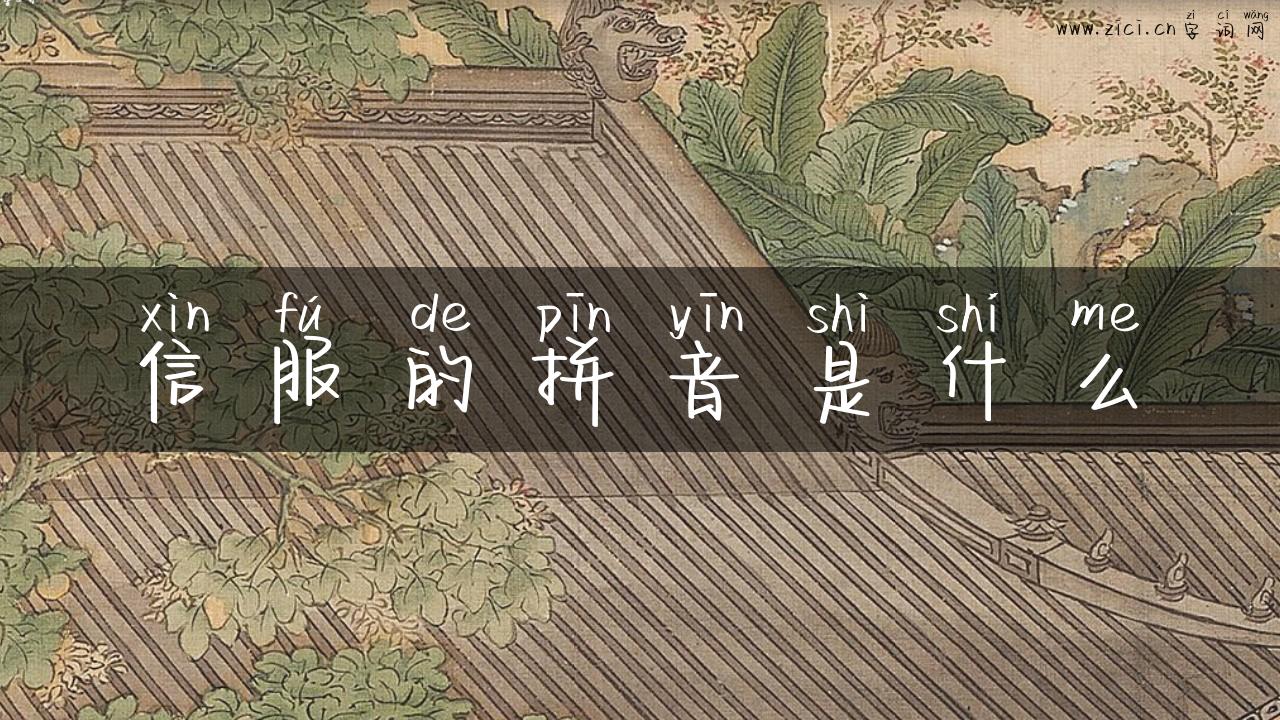 zì cí wǎng
www.zici.cn 字词网
xìn fú de pīn yīn shì shí me
信服的拼音是什么